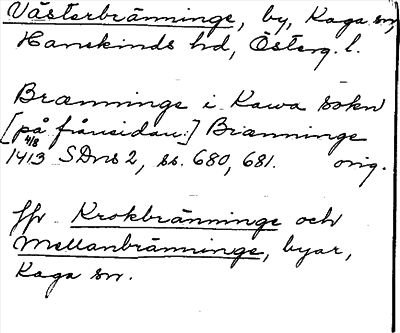 Västerbränninge, by, Kaga sn,
Hanekinds hd, Österg. l.
Brænninge i Kawa sokn
[på frånsidan:] Biænninge
4/8 1413 SDns 2, ss. 680, 681. orig.
Jfr Krokbränninge och
Mellanbränninge, byar,
Kaga sn.